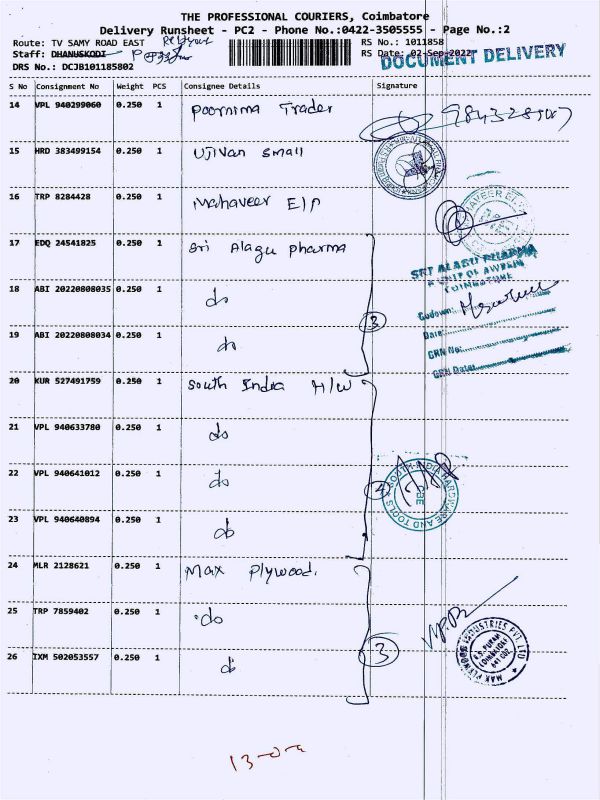 THE PROFESSIONAL COURIERS, Coimbatore
Delivery Runsheet - PC2 - Phone No.:0422-3505555 - Page No.:2
Route: TV SAMY ROAD EAST
RS No.: 1011858
Staff: DHANUSKODI
RS Date: 02-Sep-2022
DOCUMENT DELIVERY
DRS No.: DCJB101185802
S No Consignment No Weight PCS Consignee Details Signature
14 VPL 940299060 0.250 1 Poornima Trader
15 HRD 383499154 0.250 1 Ujivan Small
16 TRP 8284428 0.250 1 Mahaveer E/P
17 EDQ 24541825 0.250 1 Sri Alagu pharma
SRI ALAGU PHARMA
COIMBATORE
18 ABI 20220808035 0.250 1 do
Godown:
3
Date:
19 ABI 20220808034 0.250 1 do
GRN No:
GRN Date:
20 KUR 527491759 0.250 1 South India H/W
21 VPL 940633780 0.250 1 do
22 VPL 940641012 0.250 1 do
4
SOUTH INDIA HARDWARE AND TOOLS
CBE
23 VPL 940640894 0.250 1 do
24 MLR 2128621 0.250 1 Max Plywood.
25 TRP 7859402 0.250 1 do
26 IXM 502053557 0.250 1 do
3
MAX PLYWOOD INDUSTRIES PVT LTD
R.S. PURAM
COIMBATORE
641 002